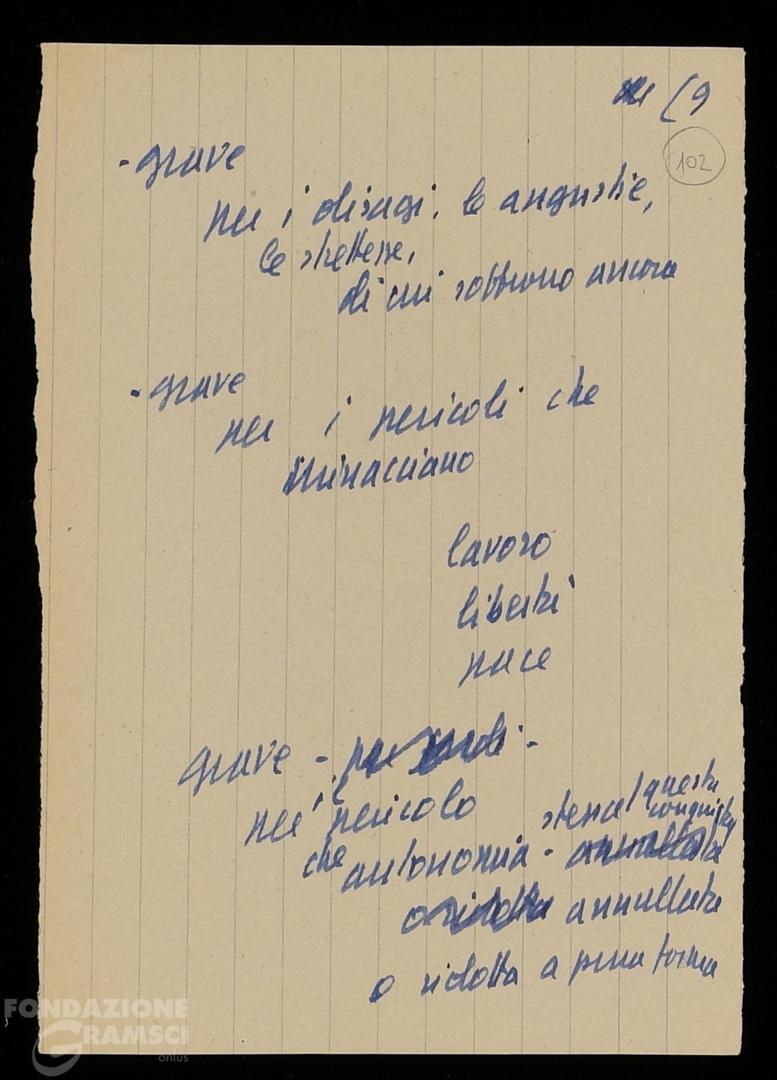 (9
102
- grave
per i disagi, le angustie,
le strettezze,
di cui soffrono ancora
- grave
per i pericoli che
minacciano
lavoro
libertà
pace
grave -
per il pericolo
che autonomia - stessa questa
conquista
annullata
o ridotta annullata
o ridotta a pura forma
FONDAZIONE
GRAMSCI
onlus